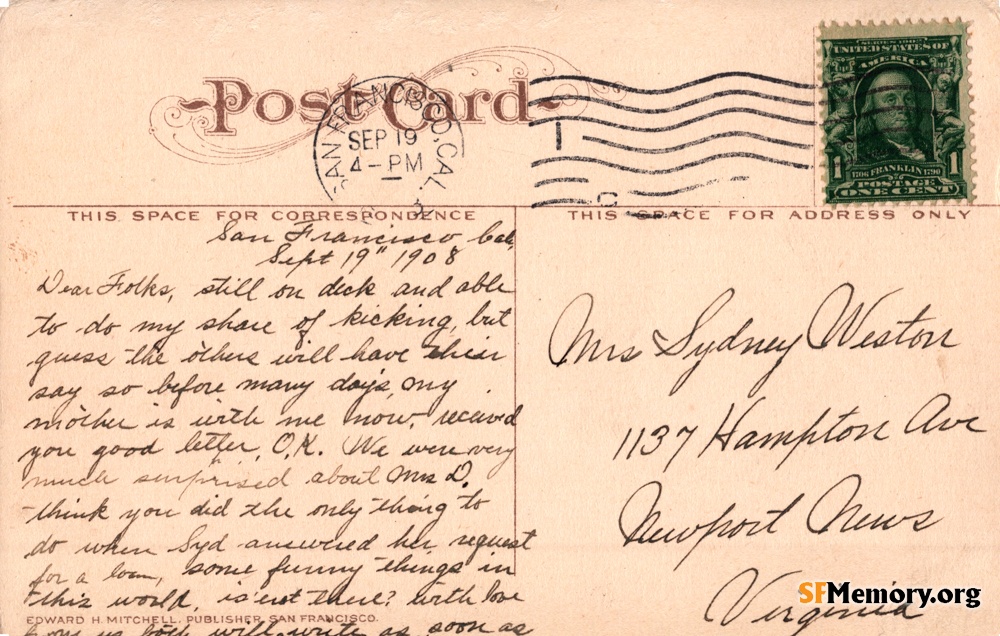 Post Card
SAN FRANCISCO, CAL.
SEP 19
4 - PM
SERIES 1902
UNITED STATES OF
AMERICA
1 1
1706 FRANKLIN 1790
POSTAGE
ONE CENT
THIS SPACE FOR CORRESPONDENCE
THIS SPACE FOR ADDRESS ONLY
San Francisco Cal,
Sept 19" 1908
Dear Folks, still on deck and able
to do my share of kicking, but
guess the others will have their
say so before many days, my
mother is with me now, received
you good letter, O.K. We were very
much surprised about Mrs D.
think you did the only thing to
do when Syd answered her request
for a loan, some funny things in
this world, is'ent there? with love
from us both will write as soon as
Mrs Sydney Weston
1137 Hampton Ave
Newport News
Virginia
EDWARD H. MITCHELL, PUBLISHER, SAN FRANCISCO.
SFMemory.org